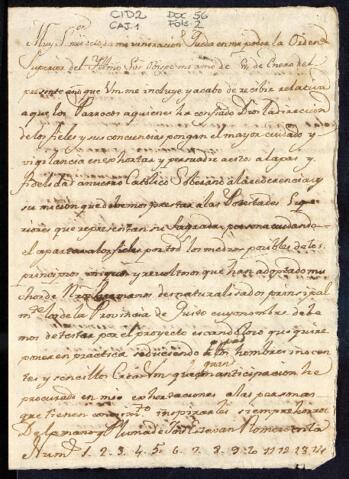 CID2 DOC 56
CAJ.1 FOLS. 2
Muy S.or mio de mi veneracion Queda en mi poder la Orden
Superior del Yllmo Sor Obispo mi amo de de Enero del
presente año que Vm me incluye y acabo de recibir relativa
a que los Parrocos a quienes ha confiado Dios la direccion
de los fieles y sus conciencias pongan el mayor cuidado y
vigilancia en exhortar y persuadir a estos a la paz y
fidelidad a nuestro Catolico Soberano a la obediencia y
sumicion que devemos prestar a las Potestades Supe
riores que representan su Sagrada persona cuidando
el apartar a los fieles por todos los medios posibles de los
principios iniquos y revoltosos que han adoptado mu
chos de Nros hermanos desnaturalisados principal
m.te los de la Provincia de Quito cuyo nombre debe
mos detestar por el proyecto escandaloso que quire
poner en practica seduciendo a los hombres inocen
tes y sencillos Crea Vm que con anticipacion he
procurado en mis exhortaciones a las personas
que tienen conocim.to inspirarles siempre horror
De la mano y Pluma de Don Estevan Romero en la
Num.o 1 2 3 4 5 6 7 8 9 10 11 12 13 14